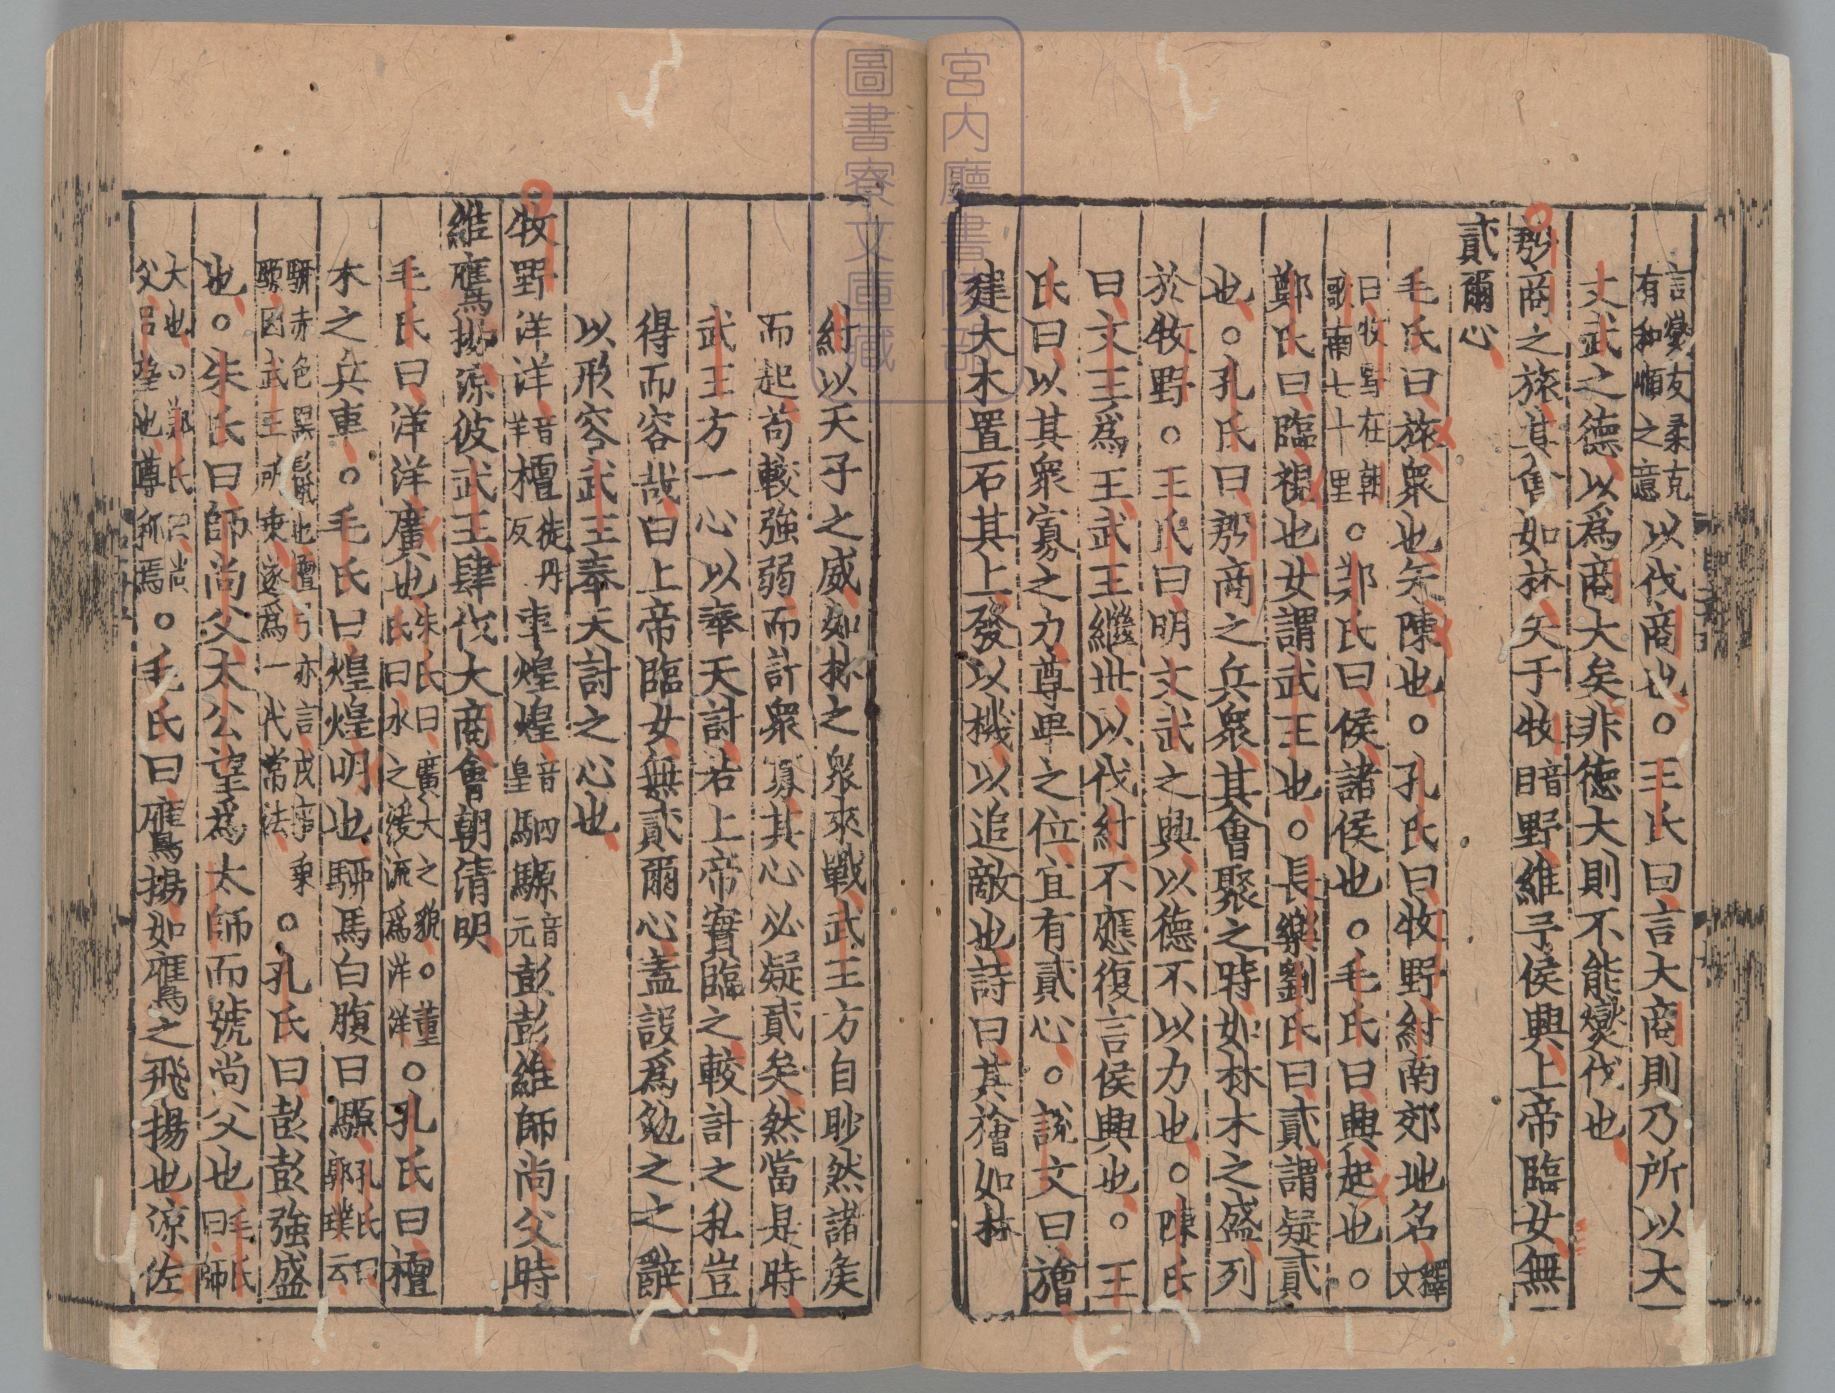 言燮友柔克
有和順之意以伐商也○王氏曰言大商則乃所以大
文武之德以爲商大矣非德大則不能燮伐也
商之旅其會如林矢于牧音目野維予侯興上帝臨女無
貳爾心
毛氏曰旅衆也矢陳也○孔氏曰牧野紂南郊地名釋文
曰牧野在朝歌南七十里○鄭氏曰侯諸侯也○毛氏曰興起也○
鄭氏曰臨視也女謂武王也○長樂劉氏曰貳謂疑貳
也○孔氏曰商之兵衆其會聚之時如林木之盛列
於牧野○王氏曰明文武之興以德不以力也○陳氏
曰文王爲王武王繼世以伐紂不應復言侯興也○王
氏曰以其衆寡之力尊卑之位宜有貳心○說文曰旝
建大木置石其上發以機以追敵也詩曰其旝如林
紂以天子之威如林之衆來戰武王方自眇然諸侯
而起苟較強弱而計衆寡其心必疑貳矣然當是時
武王方一心以奉天討若上帝實臨之較計之私豈
得而容哉曰上帝臨女無貳爾心蓋設爲勉之之辭
以形容武王奉天討之心也
牧野洋洋音羊檀徒丹反車煌煌音皇駟騵音元彭彭維師尚父時
維鷹揚涼彼武王肆伐大商會朝清明
毛氏曰洋洋廣也朱氏曰廣大之貌○董氏曰水之緩流爲洋洋○孔氏曰檀
木之兵車○毛氏曰煌煌明也騵馬白腹曰騵孔氏曰郭璞云
騵赤色黑鬣也檀弓亦言戎事乘
騵因武王所乘遂爲一代常法○孔氏曰彭彭強盛
也○朱氏曰師尚父太公望爲太師而號尚父也毛氏曰師
大也○鄭氏曰尚父呂望也尊稱焉○毛氏曰鷹揚如鷹之飛揚也涼佐
宮內廳書陵部
圖書寮文庫藏